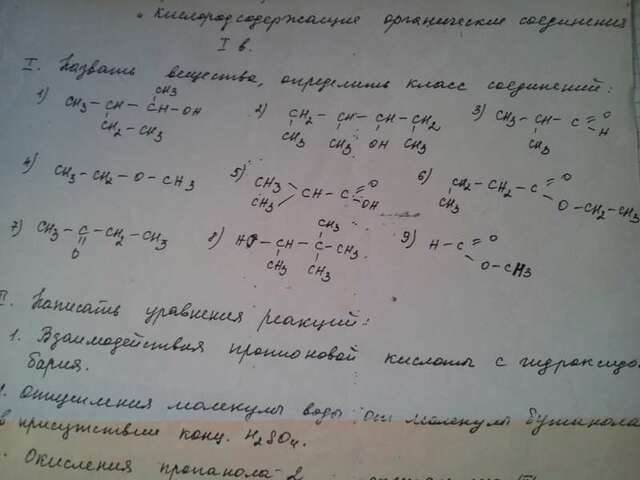 "Кислородсодержащие органические соединения
I в.
I. Назвать вещества, определить класс соединений:
1) CH3 - CH - CH - OH
CH3
CH2 - CH3
2) CH2 - CH - CH - CH2
CH3 CH3 OH CH3
3) CH3 - CH - C = O
H
CH3
4) CH3 - CH2 - O - CH3
5) CH3
CH3 CH - C = O
OH
6) CH2 - CH2 - C = O
CH3 O - CH2 - CH3
7) CH3 - C - CH2 - CH3
O
8) HO - CH - C - CH3
CH3
CH3 CH3
9) H - C = O
O - CH3
II. Написать уравнения реакций:
1. Взаимодействия пропионовой кислоты с гидроксидо
бария.
отщепления молекулы воды от молекулы бутанола
в присутствие конц. H2SO4.
Окисления пропанола-2